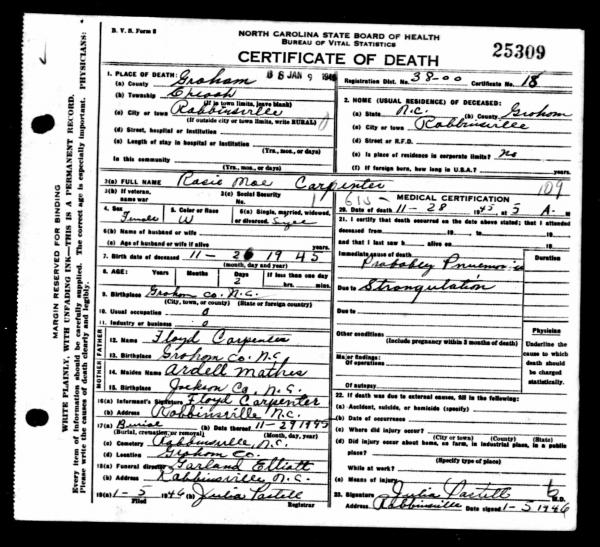 B. V. S. Form 8
NORTH CAROLINA STATE BOARD OF HEALTH
BUREAU OF VITAL STATISTICS
CERTIFICATE OF DEATH
25309
1. PLACE OF DEATH:
(a) County Graham
JAN 9 1946
(b) Township Cheoah
(If in town limits, leave blank)
(c) City or town Robbinsville
(If outside city or town limits, write RURAL)
(d) Street, hospital or institution
(e) Length of stay in hospital or institution
(Yrs., mos., or days)
In this community
(Yrs., mos., or days)
Registration Dist. No. 38-00 Certificate No. 18
2. HOME (USUAL RESIDENCE) OF DECEASED:
(a) State N.C. (b) County Graham
(c) City or town Robbinsville
(d) Street or R.F.D.
(e) Is place of residence in corporate limits? no
(f) If foreign born, how long in U.S.A.? years
3(a) FULL NAME Rosie Mae Carpenter
109
3(b) If veteran, name war
3(c) Social Security No.
4. Sex Female
5. Color or Race W
6(a) Single, married, widowed, or divorced
6(b) Name of husband or wife
(c) Age of husband or wife if alive years.
7. Birth date of deceased 11 - 26 1945
(month, day and year)
8. AGE: Years Months Days 2 If less than one day hrs. min.
9. Birthplace Graham Co. N.C.
(City, town, or county) (State or foreign country)
10. Usual occupation 0
11. Industry or business 0
FATHER
12. Name Floyd Carpenter
13. Birthplace Graham Co. N.C.
MOTHER
14. Maiden Name Ardell Mathis
15. Birthplace Jackson Co. N.C.
16(a) Informant's Signature Floyd Carpenter
(b) Address Robbinsville N.C.
17(a) Burial (b) Date thereof 11-29 1945
(Burial, cremation, or removal) (Month, day, year)
(c) Cemetery Robbinsville, N.C.
(d) Location Graham Co.
18(a) Funeral director Garland Elliott
(b) Address Robbinsville N.C.
19(a) 1-5 1946 (b) Julia Patell
Filed Registrar
615
MEDICAL CERTIFICATION
20. Date of death 11-28 1945 at 5 A. M
21. I certify that death occurred on the date above stated; that I attended
deceased from 19 to 19
and that I last saw h alive on 19
Immediate cause of death
Duration
Probabley Pnuemonia
Due to Strangulation
Due to
Other conditions
(Include pregnancy within 3 months of death)
Major findings:
Of operations
Of autopsy
Physician
Underline the cause to which death should be charged statistically.
22. If death was due to external causes, fill in the following:
(a) Accident, suicide, or homicide (specify)
(b) Date of occurrence
(c) Where did injury occur?
(City or town) (County) (State)
(d) Did injury occur about home, on farm, in industrial place, in a public
place?
(Specify type of place)
While at work?
(e) Means of injury
23. Signature Julia Patell M.D.
Address Robbinsville Date signed 1-5 1946
MARGIN RESERVED FOR BINDING
WRITE PLAINLY, WITH UNFADING INK—THIS IS A PERMANENT RECORD.
Every item of information should be carefully supplied. The correct age is especially important. PHYSICIANS:
Please write the causes of death clearly and legibly.